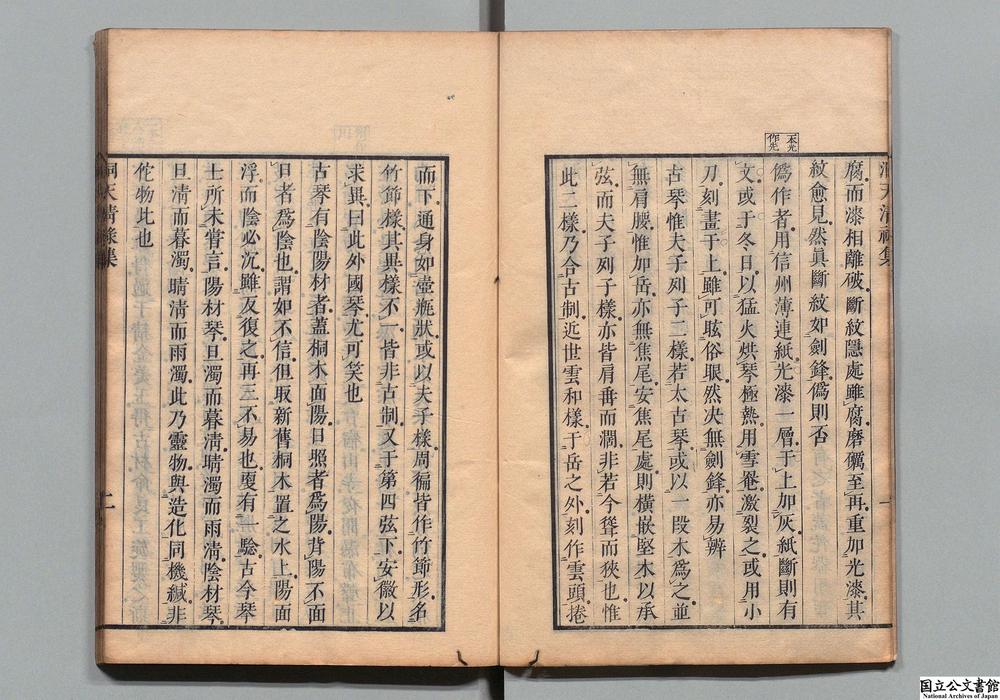 一本光
作先
洞天清祿集
一
腐而漆相離破斷紋隱處雖腐磨礪至再重加光漆其
紋愈見然眞斷紋如劍鋒僞則否
僞作者用信州薄連紙光漆一層于上加灰紙斷則有
文或于冬日以猛火烘琴極熱用雪罨激裂之或用小
刀刻畫于上雖可眩俗眼然決無劍鋒亦易辨
古琴惟夫子列子二樣若太古琴或以一段木爲之並
無肩腰惟加岳亦無焦尾安焦尾處則橫嵌堅木以承
弦而夫子列子樣亦皆肩垂而濶非若今聳而狹也惟
此二樣乃合古制近世雲和樣于岳之外刻作雲頭捲
而下通身如壺瓶狀或以夫子樣周徧皆作竹節形名
竹節樣其異樣不一皆非古制又于第四弦下安徽以
求異曰此外國琴尤可笑也
古琴有陰陽材者蓋桐木面陽日照者爲陽背陽不面
日者爲陰也謂如不信但取新舊桐木置之水上陽面
浮而陰必沉雖反復之再三不易也更有一驗古今琴
士所未嘗言陽材琴旦濁而暮淸晴濁而雨淸陰材琴
旦淸而暮濁晴淸而雨濁此乃靈物與造化同機緘非
佗物比也
洞天清祿集
二
国立公文書館
National Archives of Japan